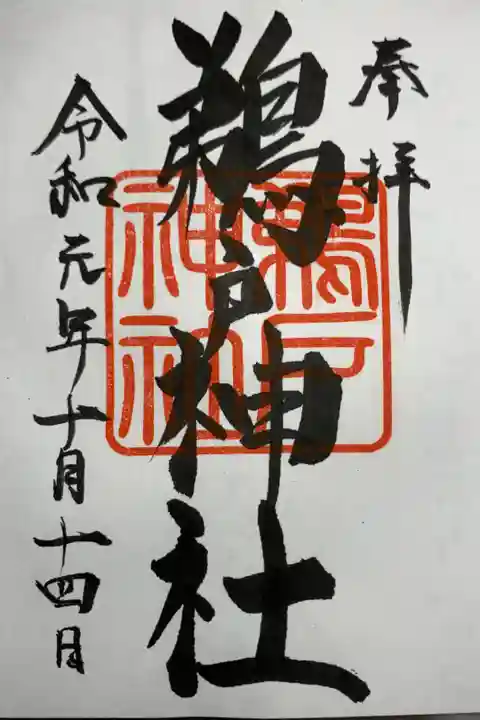 奉拝
鵜戸神社
鵜戸
神社
令和元年十月十四日